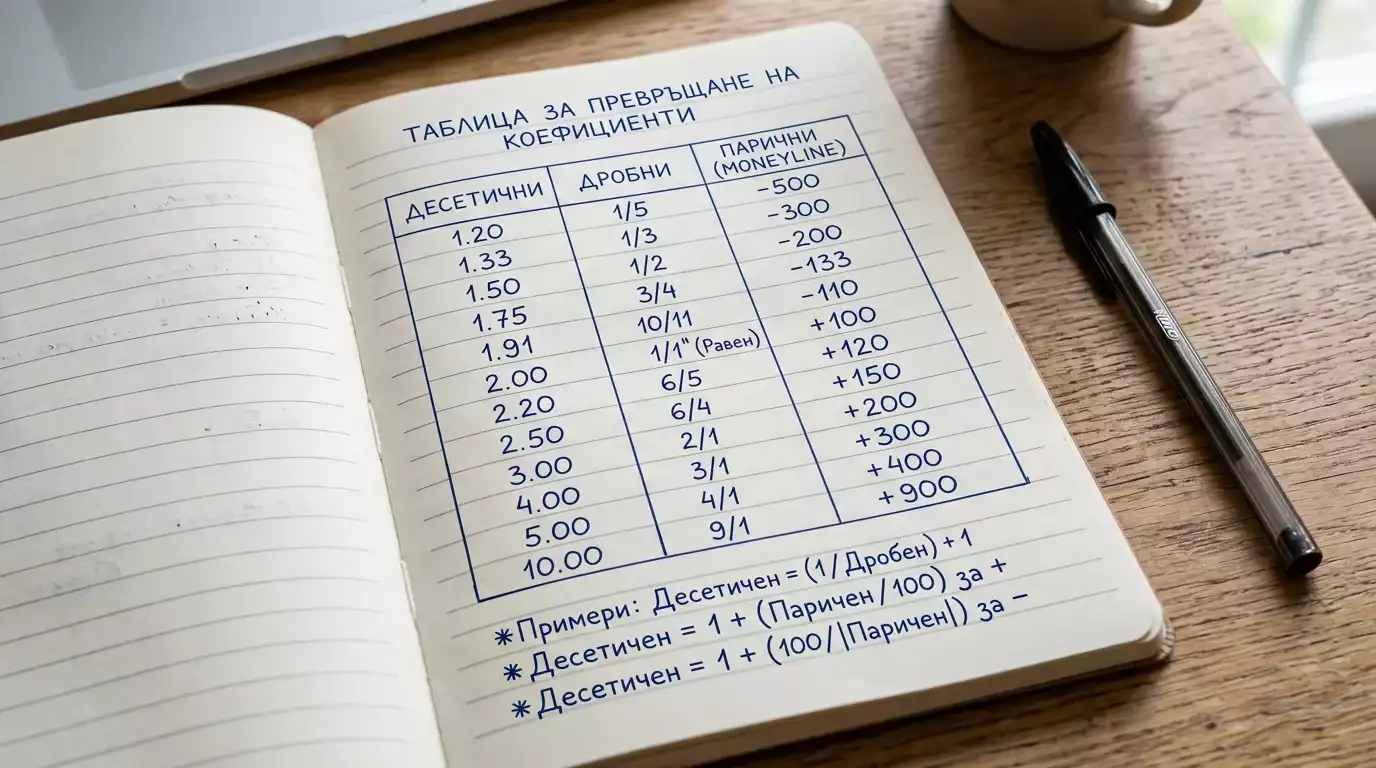 ТАБЛИЦА ЗА ПРЕВРЪЩАНЕ НА
КОЕФИЦИЕНТИ
ДЕСЕТИЧНИ ДРОБНИ ПАРИЧНИ (MONEYLINE)
1.20 1/5 -500
1.33 1/3 -300
1.50 1/2 -200
1.75 3/4 -133
1.91 10/11 -110
2.00 1/1" (Равен) +100
2.20 6/5 +120
2.50 6/4 +150
3.00 2/1 +200
4.00 3/1 +300
5.00 4/1 +400
10.00 9/1 +900
*Примери: Десетичен = (1/Дробен) + 1
* Десетичен = 1 + (Паричен/100) за +
* Десетичен = 1 + (100/|Паричен|) за −